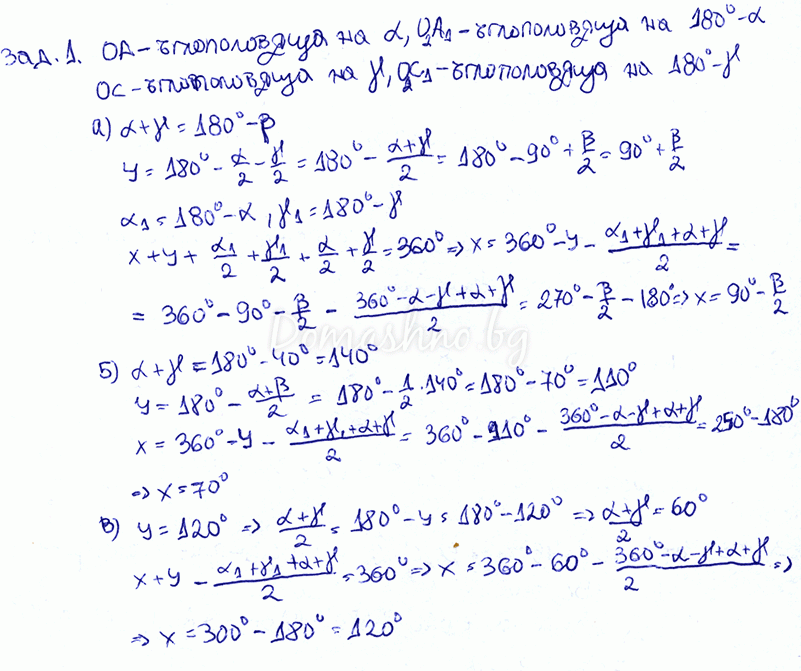 Зад.1. OA-ъглополовяща на α, O₂A₁-ъглополовяща на 180°-α
OC-ъглополовяща на γ, O₂C₁-ъглополовяща на 180°-γ
а) α+γ = 180°-β
y = 180° - α/2 - γ/2 = 180° - (α+γ)/2 = 180° - 90° + β/2 = 90° + β/2
α₁ = 180°-α, γ₁ = 180°-γ
x + y + α₁/2 + γ₁/2 + α/2 + γ/2 = 360° => x = 360° - y - (α₁+γ₁+α+γ)/2 =
= 360° - 90° - β/2 - (360°-α-γ+α+γ)/2 = 270° - β/2 - 180° => x = 90° - β/2
Domashno.bg
Б) α+γ = 180° - 40° = 140°
y = 180° - (α+β)/2 = 180° - 1/2 · 140° = 180° - 70° = 110°
x = 360° - y - (α₁+γ₁+α+γ)/2 = 360° - 110° - (360°-α-γ+α+γ)/2 = 250° - 180°
=> x = 70°
В) y = 120° => (α+γ)/2 = 180° - y = 180° - 120° => (α+γ)/2 = 60°
x + y - (α₁+γ₁+α+γ)/2 = 360° => x = 360° - 60° - (360°-α-γ+α+γ)/2 =>
=> x = 300° - 180° = 120°